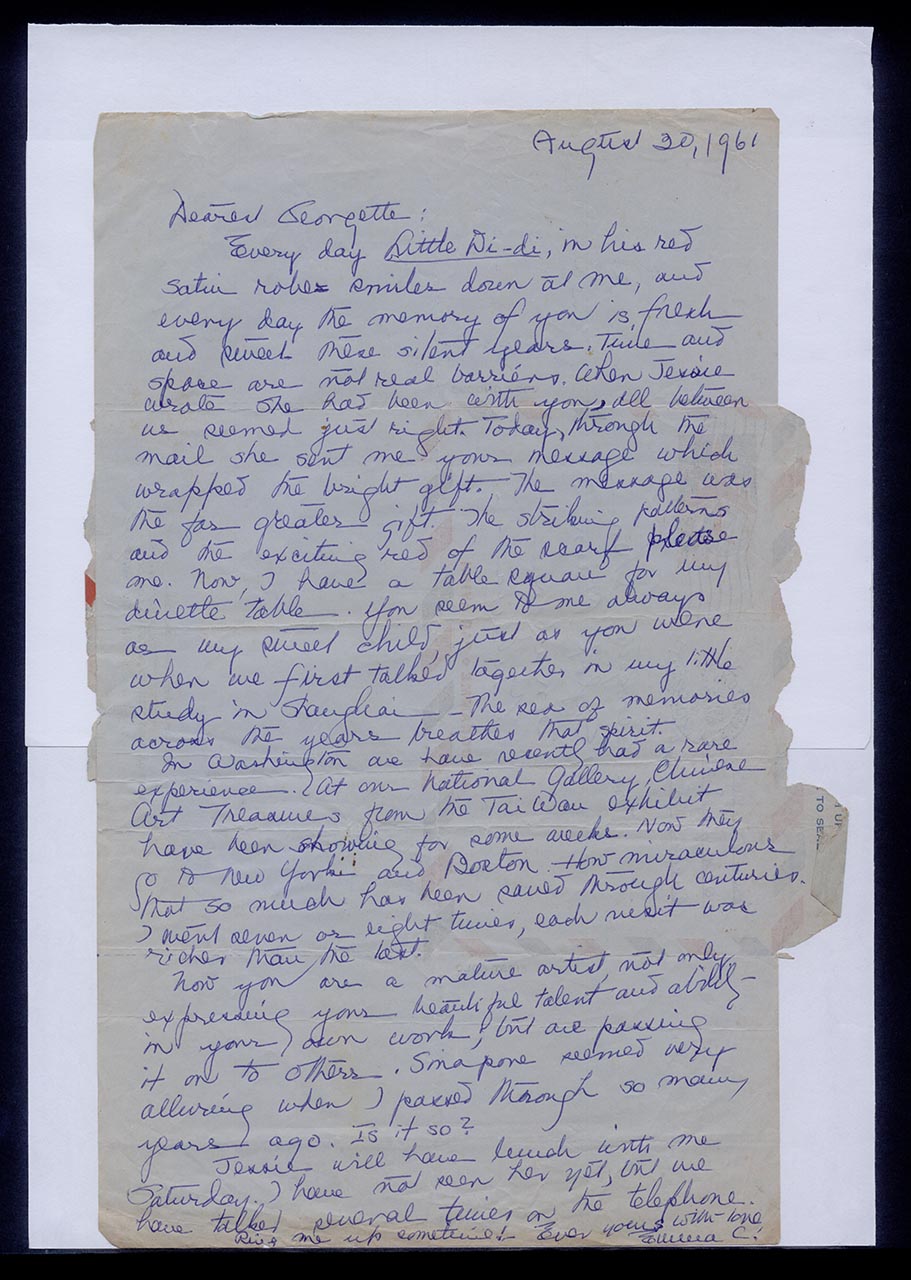 August 30, 1961
Dearest Georgette:
Every day Little Di-di, in his red
satin robes smiles down at me, and
every day the memory of you is fresh
and sweet these silent years. Time and
space are not real barriers. When Jessie
wrote she had been with you, all between
us seemed just right. Today, through the
mail she sent me your message which
wrapped the bright gift. The message was
the far greater gift. The striking patterns
and the exciting red of the scarf please
me. Now, I have a table square for my
dinette table. You seem to me always
as my sweet child, just as you were
when we first talked together in my little
study in Shanghai - The sea of memories
across the years breathes that spirit.
In Washington we have recently had a rare
experience. At our National Gallery, Chinese
Art Treasures from the Taiwan exhibit
have been showing for some weeks. Now they
go to New York and Boston. How miraculous
that so much has been saved through centuries.
I went seven or eight times, each visit was
richer than the last.
Now you are a mature artist, not only
expressing your beautiful talent and ability
in your own work, but are passing
it on to others. Sinapore seemed very
alluring when I passed through so many
years ago. Is it so?
Jessie will have lunch with me
Saturday. I have not seen her yet, but we
have talked several times on the telephone.
Ring me up sometime! Ever yours with love
Emma C.
TO SEAL